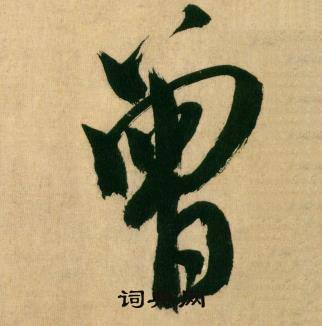 曾
词典网